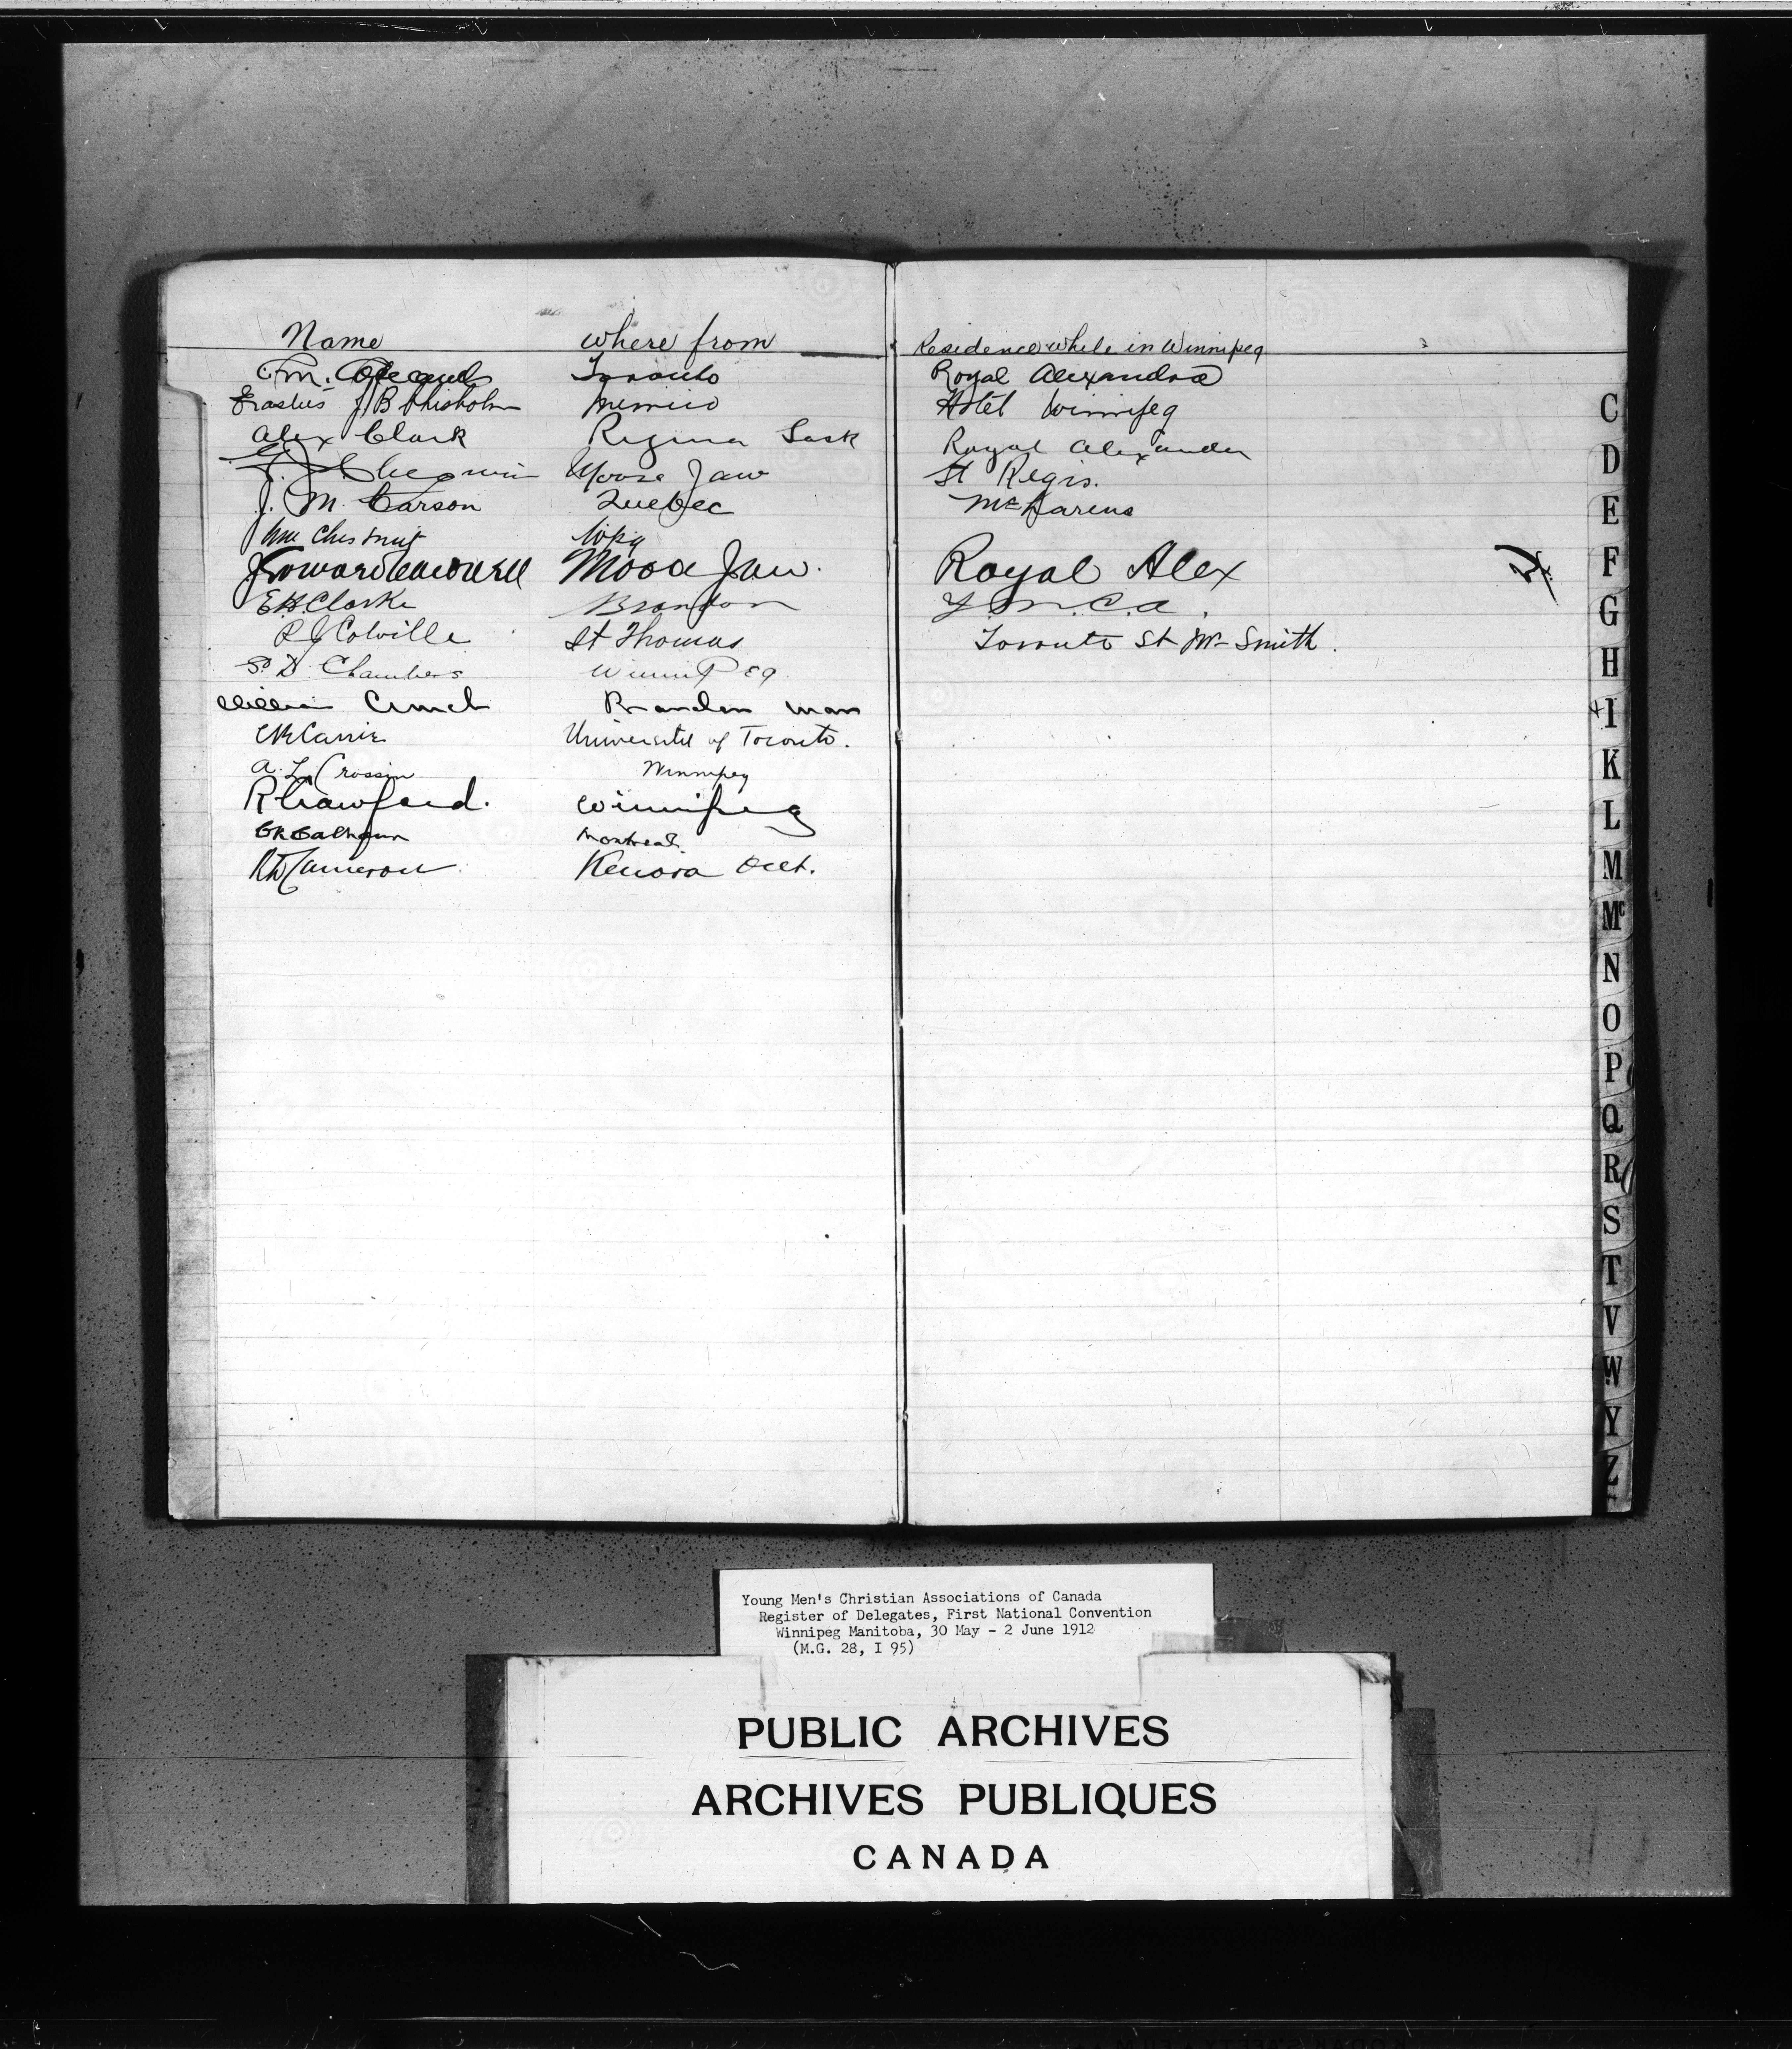 Name where from Residence while in Winnipeg
Toronto Royal Alexandra
Erastus J B Chisholm Mimico Hotel Winnipeg
Alex Clark Regina Sask Royal Alexander
Moose Jaw St Regis.
J. M. Carson Quebec McLarens
Wm Chestnut Wpg
Moose Jaw. Royal Alex
E H Clarke Brandon Y.M.C.A.
R J Colville St Thomas Toronto St Mr Smith.
S. D. Chambers Winnipeg
William Brandon Man
University of Toronto.
A. L. Crossin Winnipeg
R Crawford. Winnipeg
Calhoun Montreal.
Cameron Kenora Ont.
C
D
E
F
G
H
I
K
L
M
Mc
N
O
P
Q
R
S
T
V
W
Y
Z
Young Men's Christian Associations of Canada
Register of Delegates, First National Convention
Winnipeg Manitoba, 30 May - 2 June 1912
(M.G. 28, I 95)
PUBLIC ARCHIVES
ARCHIVES PUBLIQUES
CANADA